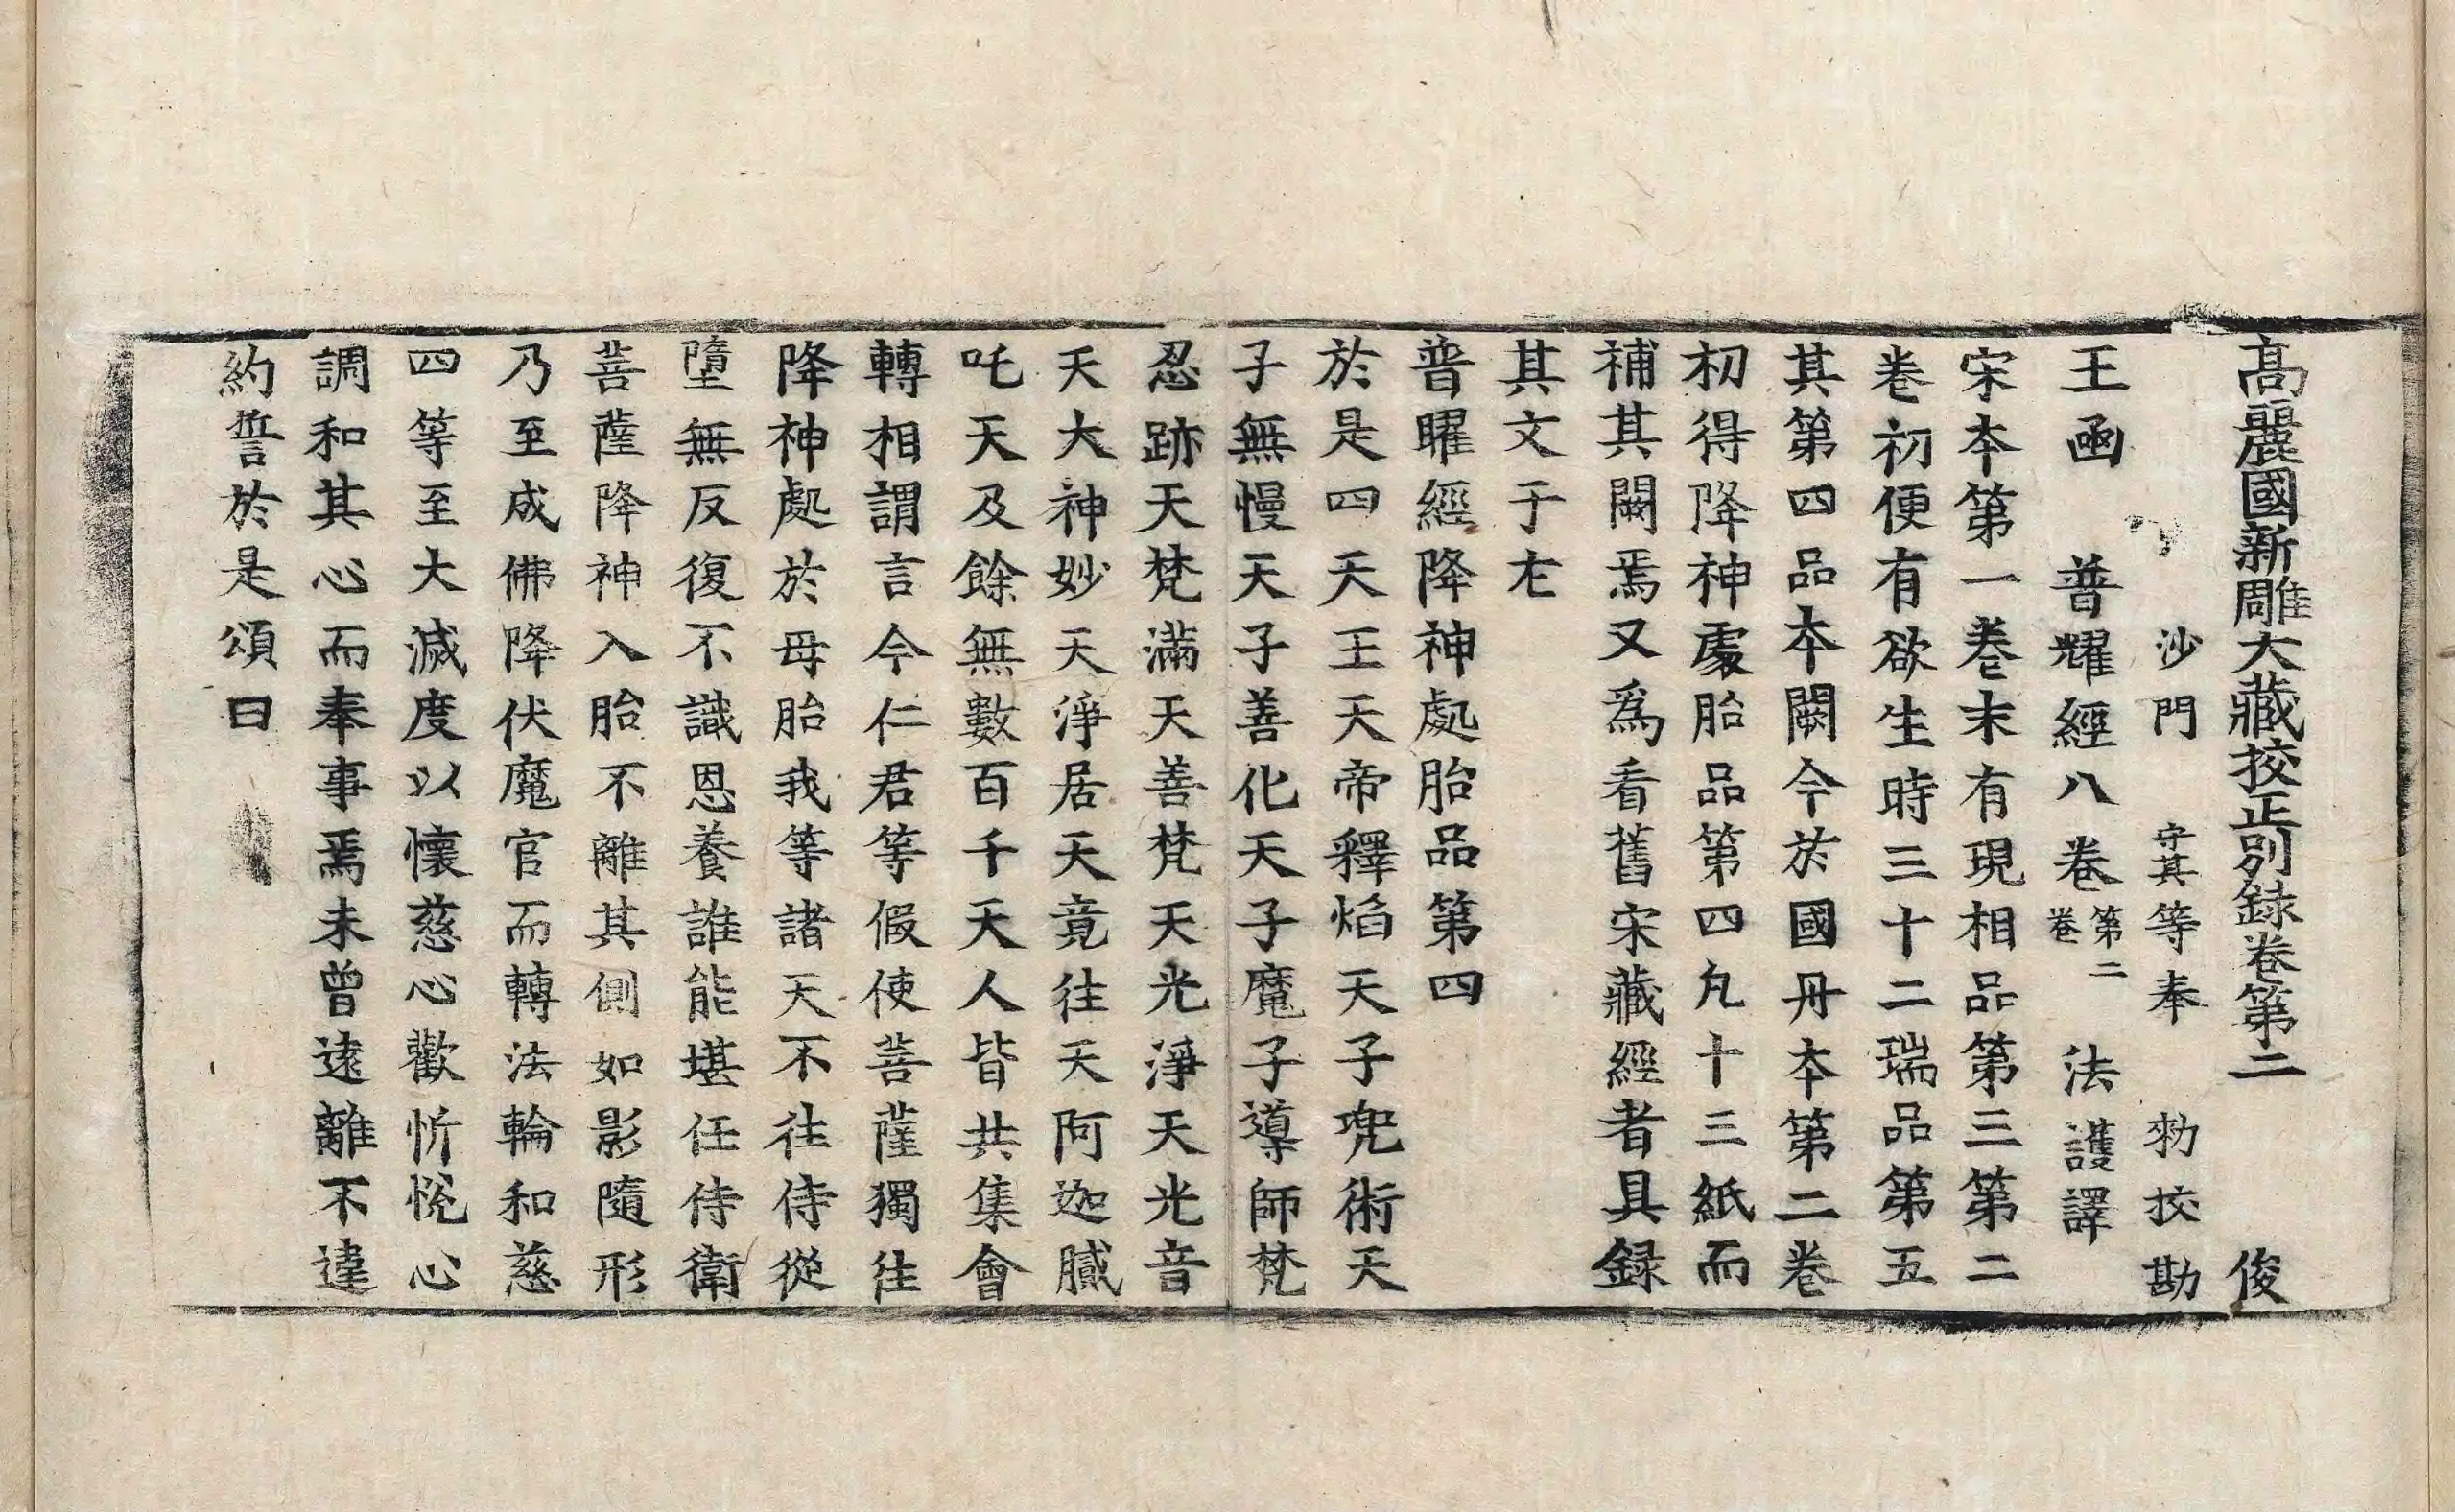 高麗國新雕大藏挍正別録卷第二 俊
沙門 守其等奉 勑挍勘
王函 普耀經八卷 第二卷 法護譯
宋本第一卷末有現相品第三第二
卷初便有欲生時三十二瑞品第五
其第四品本闕今於國丹本第二卷
初得降神處胎品第四凡十三紙而
補其闕焉又爲看舊宋藏經者具録
其文于左
普曜經降神處胎品第四
於是四天王天帝釋焰天子兜術天
子無慢天子善化天子魔子導師梵
忍跡天梵滿天善梵天光淨天光音
天大神妙天淨居天竟往天阿迦膩
吒天及餘無數百千天人皆共集會
轉相謂言今仁君等假使菩薩獨往
降神處於母胎我等諸天不往侍從
墮無反復不識恩養誰能堪任侍衛
菩薩降神入胎不離其側如影隨形
乃至成佛降伏魔官而轉法輪和慈
四等至大滅度以懷慈心歡忻悅心
調和其心而奉事焉未曾遠離不違
約誓於是頌曰